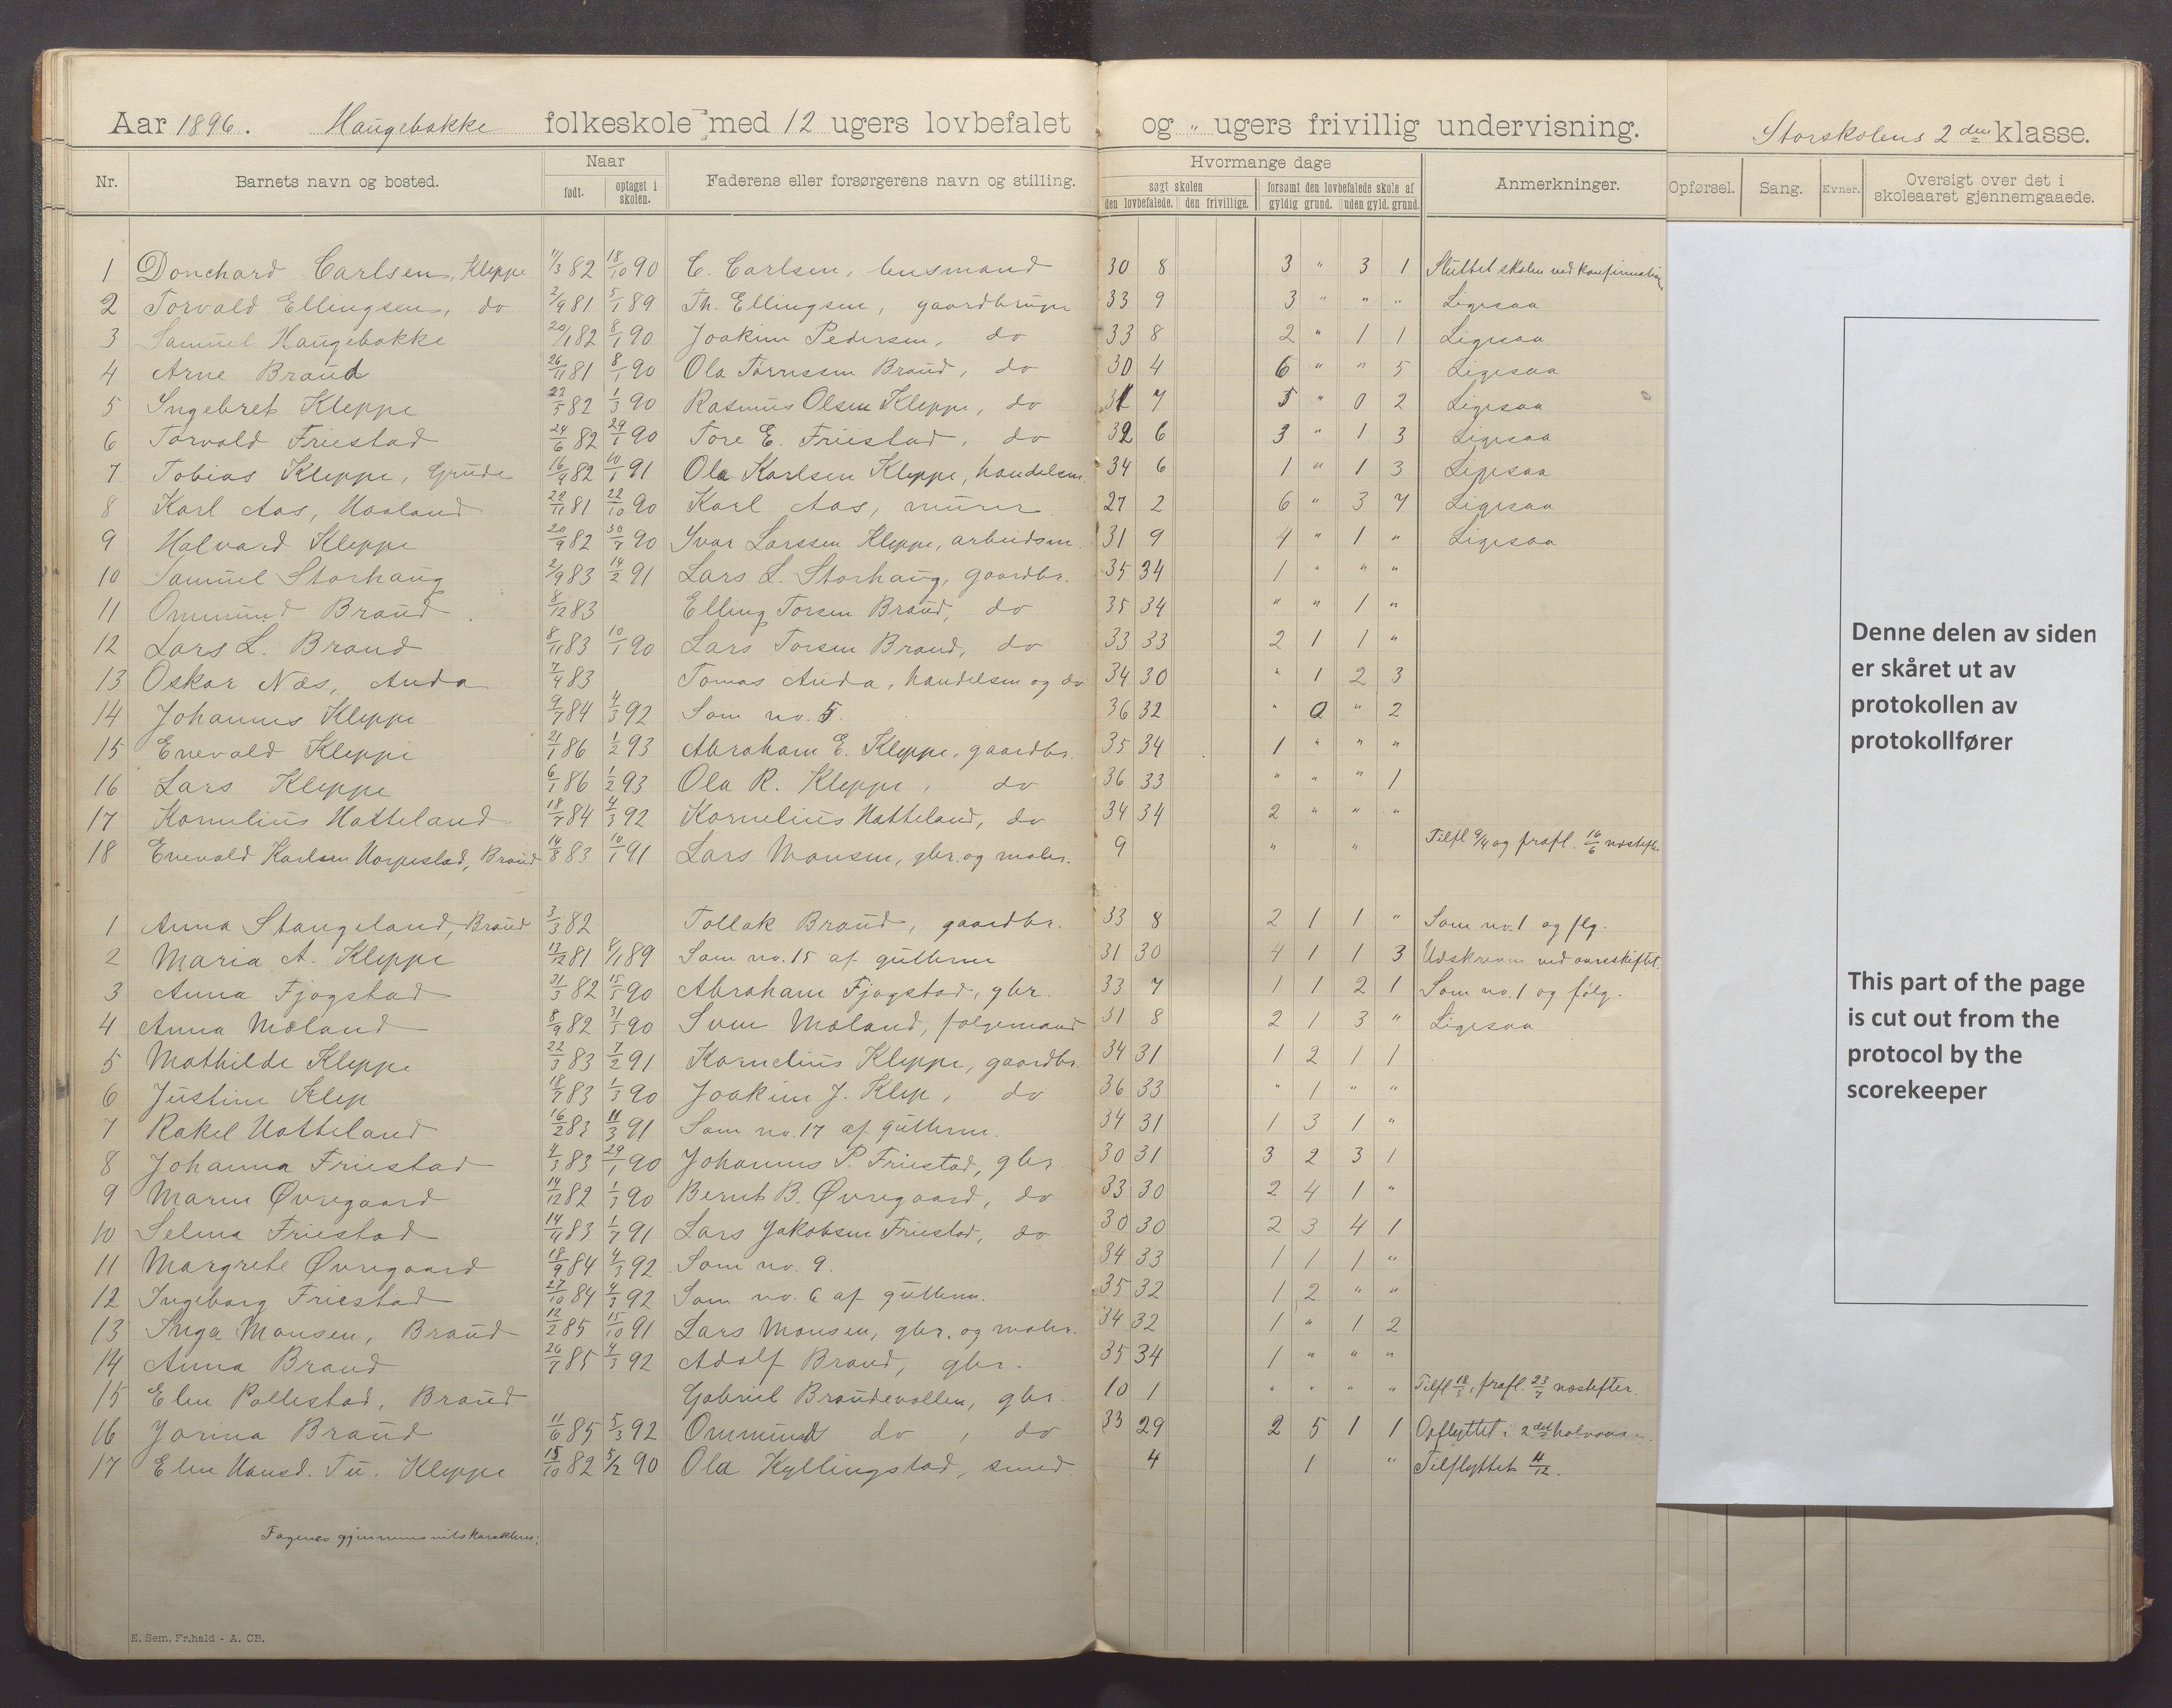 Aar 1896. Haugebakke folkeskole med 12 ugers lovbefalet og " ugers frivillig undervisning. Storskolens 2den klasse.
Nr. Barnets navn og bosted. Naar født. optaget i skolen. Faderens eller forsørgerens navn og stilling. Hvormange dage søgt skolen den lovbefalede. den frivillige. forsømt den lovbefalede skole af gyldig grund. uden gyld. grund. Anmerkninger. Opførsel. Sang. Evner. Oversigt over det i skoleaaret gjennemgaaede.
1 Donchard Carlsen, Kleppe 11/3 82 18/10 90 C. Carlsen, husmand 30 8 3 " 3 1 Sluttet skolen ved konfirmation
2 Torvald Ellingsen, do 2/9 81 5/1 89 Th. Ellingsen, gaardbruger 33 9 3 " " " Ligesaa
3 Samuel Haugebakke 20/1 82 8/1 90 Joakim Pedersen, do 33 8 2 " 1 1 Ligesaa
4 Arne Braud 26/11 81 8/1 90 Ola Tørressen Braud, do 30 4 6 " " 5 Ligesaa
5 Ingebret Kleppe 22/5 82 1/3 90 Rasmus Olsen Kleppe, do 31 7 5 " 0 2 Ligesaa
6 Torvald Friestad 24/6 82 29/1 90 Tore E. Friestad, do 32 6 3 " 1 3 Ligesaa
7 Tobias Kleppe, Grude 16/9 82 10/1 91 Ola Karlsen Kleppe, handelsm. 34 6 1 " 1 3 Ligesaa
8 Karl Aas, Haaland 22/11 81 22/10 90 Karl Aas, murer 27 2 6 " 3 7 Ligesaa
9 Halvard Kleppe 20/9 82 30/9 90 Ivar Larssen Kleppe, arbeidsm. 31 9 4 " 1 " Ligesaa
10 Samuel Storhaug 2/9 83 14/2 91 Lars L. Storhaug, gaardbr. 35 34 1 " " "
11 Ommund Braud 8/12 83 Elling Torsen Braud, do 35 34 " " 1 "
12 Lars L. Braud 8/11 83 10/1 90 Lars Torsen Braud, do 33 33 2 1 1 "
13 Oskar Næs, Anda 7/4 83 Tomas Anda, handelsm og do 34 30 " 1 2 3
14 Johannes Kleppe 9/7 84 4/3 92 Som no. 5. 36 32 " 0 " 2
15 Enevald Kleppe 21/1 86 1/2 93 Abraham E. Kleppe, gaardbr. 35 34 1 " " "
16 Lars Kleppe 6/1 86 1/2 93 Ola R. Kleppe, do 36 33 " " " 1
17 Kornelius Hatteland 18/7 84 4/3 92 Kornelius Hatteland, do 34 34 2 " " "
18 Enevald Karlsen Horpestad, Braud 14/8 83 10/1 91 Lars Monsen, gbr. og maler. 9 " " Tilfl 9/4 og frafl. 16/6 næstefter.
1 Anna Stangeland, Braud 3/3 82 Tollak Braud, gaardbr. 33 8 2 1 1 " Som no. 1 og flg.
2 Maria A. Kleppe 13/12 81 8/1 89 Som no. 15 af gutterne 31 30 4 1 1 3 Udskreven ved aarsskiftet.
3 Anna Fjogstad 31/3 82 15/5 90 Abraham Fjogstad, gbr. 33 7 1 1 2 1 Som no. 1 og følg.
4 Anna Mæland 8/9 82 31/5 90 Sven Mæland, følgemand 31 8 2 1 3 " Ligesaa
5 Mathilde Kleppe 22/3 83 7/2 91 Kornelius Kleppe, gaardbr. 34 31 1 2 1 1
6 Justine Klep 18/7 83 1/3 90 Joakim J. Klep, do 36 33 " 1 " "
7 Rakel Hatteland 16/2 83 11/3 91 Som no. 17 af gutterne. 34 31 1 3 1 "
8 Johanna Friestad 4/3 83 29/1 90 Johannes P. Friestad, gbr 30 31 3 2 3 1
9 Maren Øvregaard 14/12 82 1/3 90 Bernt B. Øvregaard, do 33 30 2 4 1 "
10 Selma Friestad 14/4 83 1/7 91 Lars Jakobsen Friestad, do 30 30 2 3 4 1
11 Margrete Øvregaard 18/9 84 4/3 92 Som no. 9. 34 33 1 1 1 "
12 Ingeborg Friestad 27/10 84 4/3 92 Som no. 6 af gutterne. 35 32 1 2 " "
13 Inga Monsen, Braud 12/2 85 15/10 91 Lars Monsen, gbr. og maler. 34 32 1 " 1 2
14 Anna Braud 26/7 85 4/3 92 Adolf Braud, gbr. 35 34 1 " " "
15 Elen Pollestad, Braud Gabriel Braudevollen, gbr. 10 1 " " " " Tilfl 18/3, frafl. 23/7 næstefter.
16 Jorina Braud 11/6 85 5/3 92 Ommund do, do 33 29 2 5 1 1 Opflyttet i 2det halvaar
17 Elen Hansd. Tu, Kleppe 15/10 82 5/2 90 Ola Kyllingstad, smed 4 1 " Tilflyttet 11/12.
Fagenes gjennemsnitskarakterer:
E. Sem, Fr.hald - A. CB.
Denne delen av siden
er skåret ut av
protokollen av
protokollfører
This part of the page
is cut out from the
protocol by the
scorekeeper